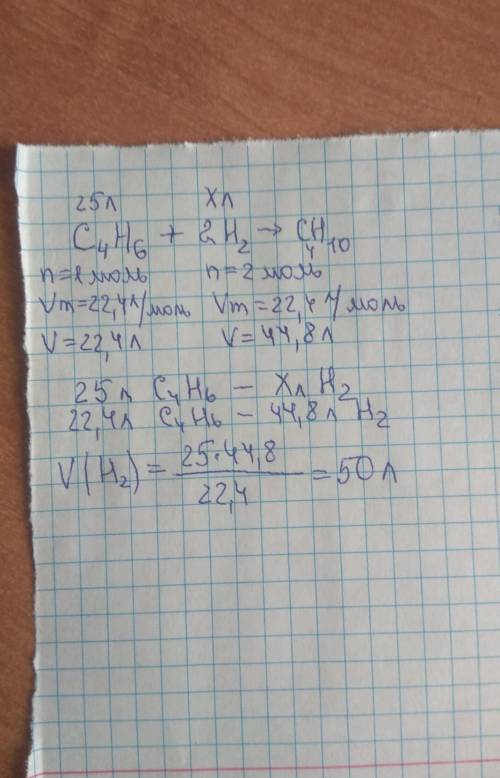 25л хл
C₄H₆ + 2H₂ → C₄H₁₀
n=1 моль n=2 моль
Vm=22,4л/моль Vm=22,4 л/моль
V=22,4л V=44,8л
25л C₄H₆ — хл H₂
22,4л C₄H₆ — 44,8л H₂
V(H₂) = 25·44,8 / 22,4 = 50 л